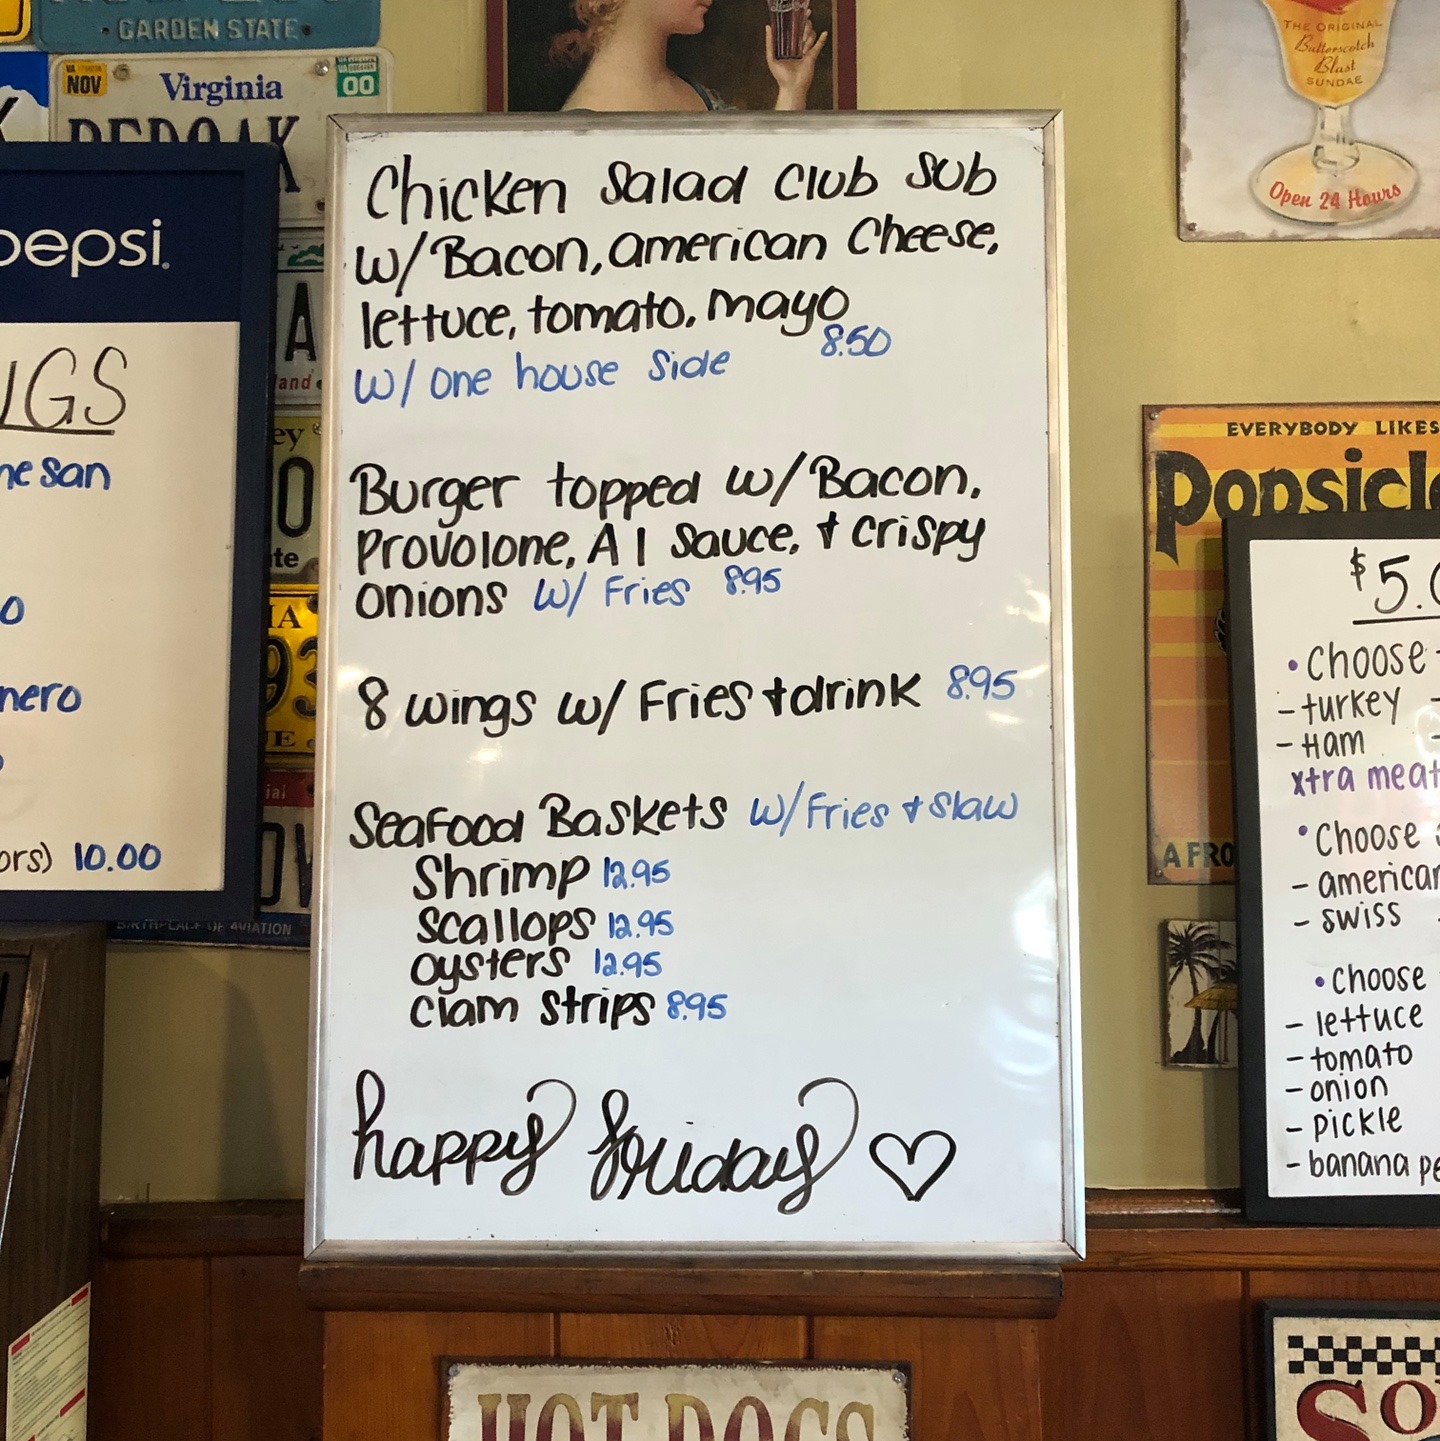 GARDEN STATE
VA
NOV
Virginia
VA
00
pepsi
10.00
BIRTHPLACE OF AVIATION
Chicken Salad Club Sub
w/Bacon, american cheese,
lettuce, tomato, mayo
8.50
w/ one house side
Burger topped w/Bacon,
Provolone, A1 sauce, + crispy
onions w/ Fries 8.95
8 wings w/ Fries + drink 8.95
Seafood Baskets w/Fries + slaw
Shrimp 12.95
Scallops 12.95
oysters 12.95
clam strips 8.95
happy friday ♡
THE ORIGINAL
Butterscotch
Blast
SUNDAE
Open 24 Hours
EVERYBODY LIKES
$5.0
• choose
- turkey
- Ham
xtra meat
• choose
- american
- swiss
• choose
- lettuce
- tomato
- onion
- pickle
- banana pe
HOT DOGS